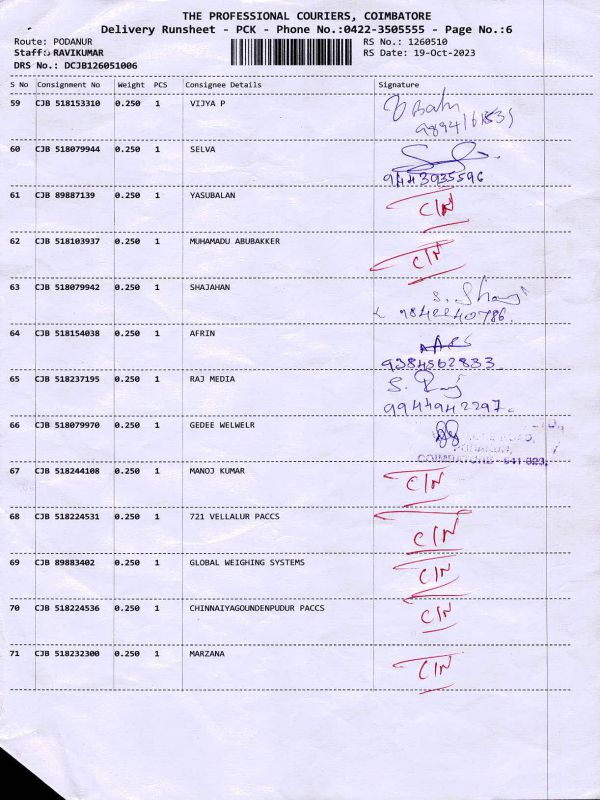 THE PROFESSIONAL COURIERS, COIMBATORE
Delivery Runsheet - PCK - Phone No.:0422-3505555 - Page No.:6
Route: PODANUR RS No.: 1260510
Staff: RAVIKUMAR RS Date: 19-Oct-2023
DRS No.: DCJB126051006
S No Consignment No Weight PCS Consignee Details Signature
59 CJB 518153310 0.250 1 VIJYA P
60 CJB 518079944 0.250 1 SELVA
9443935596
61 CJB 89887139 0.250 1 YASUBALAN C/N
62 CJB 518103937 0.250 1 MUHAMADU ABUBAKKER C/N
63 CJB 518079942 0.250 1 SHAJAHAN
9842240786.
64 CJB 518154038 0.250 1 AFRIN
9384562833
65 CJB 518237195 0.250 1 RAJ MEDIA S. Raj
9944942297.
66 CJB 518079970 0.250 1 GEDEE WELWELR
ROAD,
PODANUR,
COIMBATORE - 641 023,
67 CJB 518244108 0.250 1 MANOJ KUMAR C/N
68 CJB 518224531 0.250 1 721 VELLALUR PACCS C/N
69 CJB 89883402 0.250 1 GLOBAL WEIGHING SYSTEMS C/N
70 CJB 518224536 0.250 1 CHINNAIYAGOUNDENPUDUR PACCS C/N
71 CJB 518232300 0.250 1 MARZANA C/N